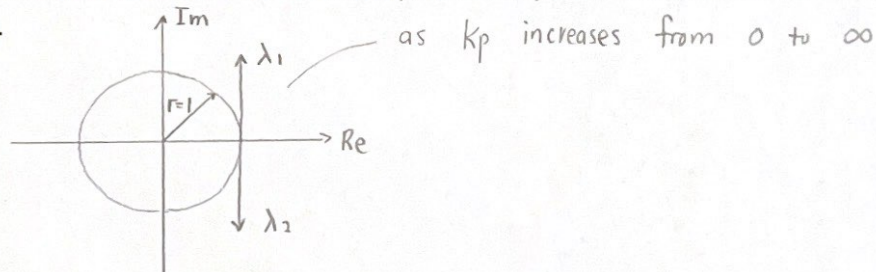 Im
λ1
as Kp increases from 0 to ∞
r=1
Re
λ2